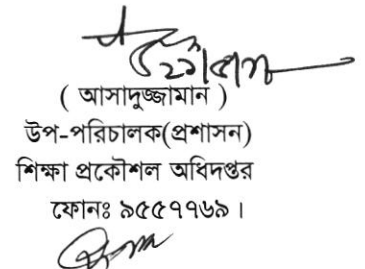 ( আসাদুজ্জামান )
উপ-পরিচালক(প্রশাসন)
শিক্ষা প্রকৌশল অধিদপ্তর
ফোনঃ ৯৫৫৭৭৬৯ ।